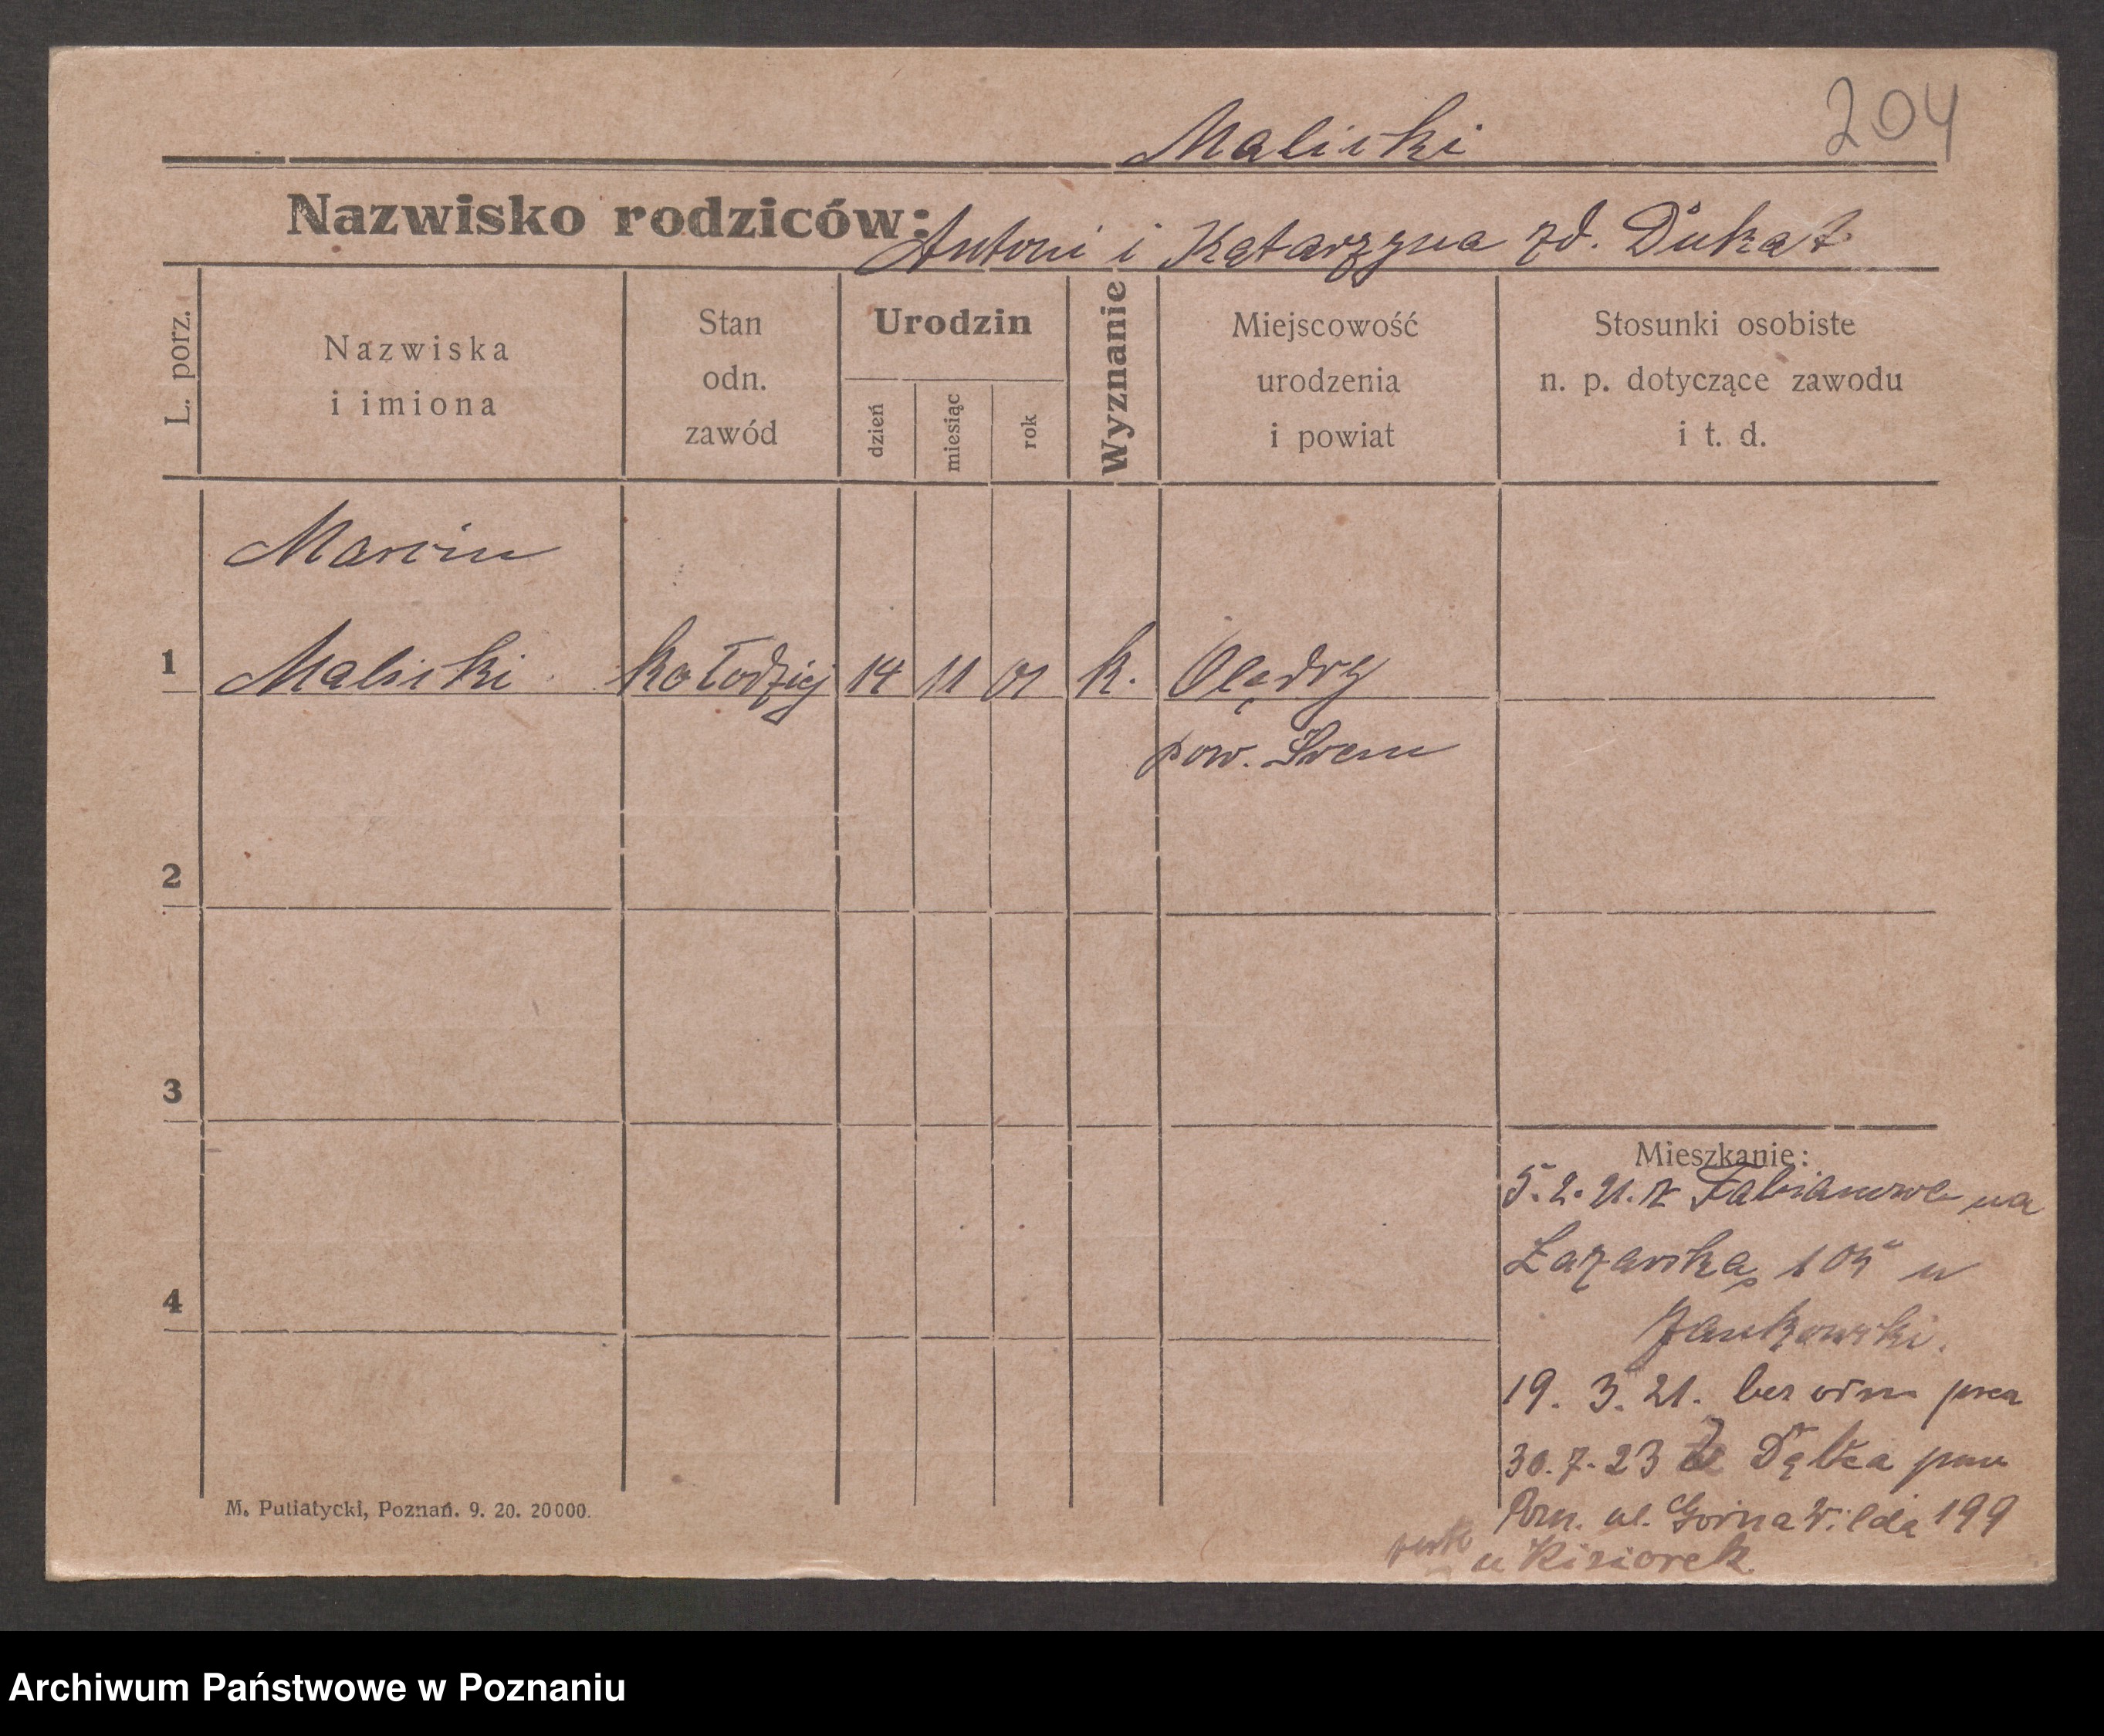 204
Malicki
Nazwisko rodziców: Antoni i Katarzyna zd. Dukat
L. porz.
Nazwiska
i imiona
Stan
odn.
zawód
Urodzin
dzień
miesiąc
rok
Wyznanie
Miejscowość
urodzenia
i powiat
Stosunki osobiste
n. p. dotyczące zawodu
i t. d.
Marcin
1 Malicki kołodziej 14 11 01 k. Olędry
pow. Śrem
2
3
4
Mieszkanie:
5.2.21. z Fabianowo na
Łazarska 105 u
Jankowski.
19. 3. 21. bez odm
30.7.23 Dębca
Pozn. ul. Górna Wilda 199
u Kiziorek
M. Putiatycki, Poznań. 9. 20. 20000.
Archiwum Państwowe w Poznaniu